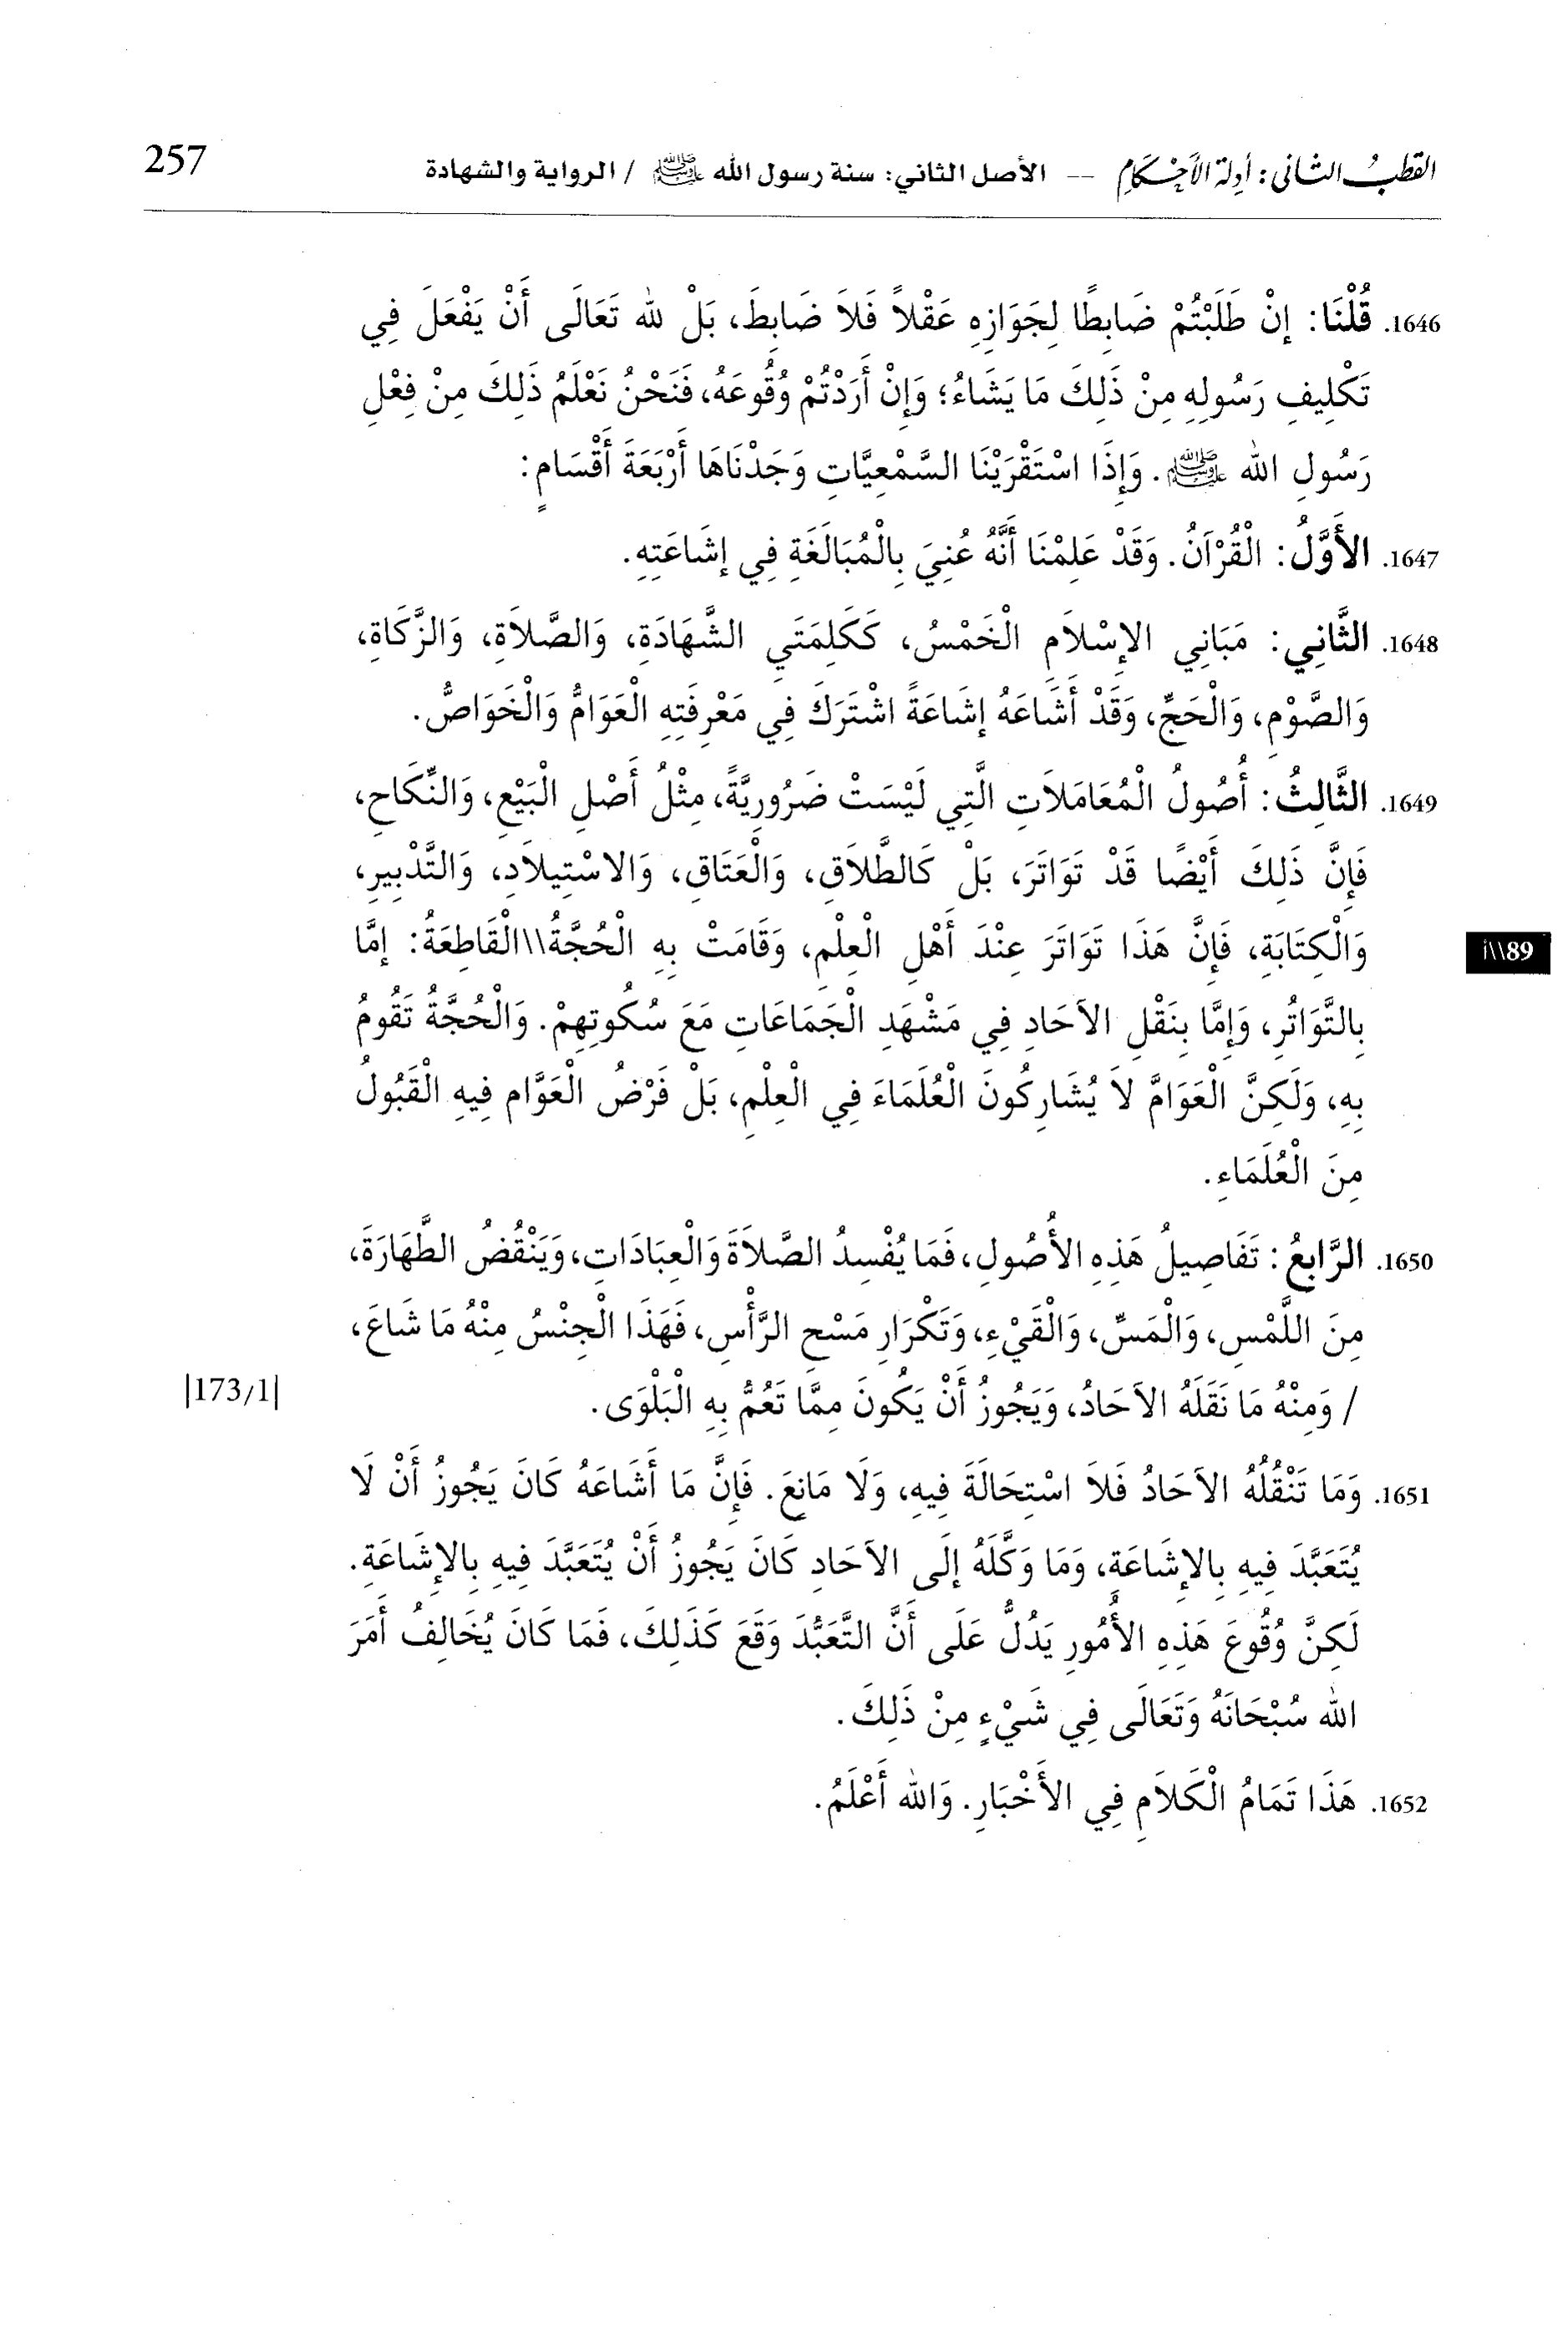 القطب الثاني: أدلة الأحكام -- الأصل الثاني: سنة رسول الله ﷺ / الرواية والشهادة 257
1646. قُلْنَا: إِنْ طَلَبْتُمْ ضَابِطًا لِجَوَازِهِ عَقْلاً فَلاَ ضَابِطَ، بَلْ لله تَعَالَى أَنْ يَفْعَلَ فِي
تَكْلِيفِ رَسُولِهِ مِنْ ذَلِكَ مَا يَشَاءُ؛ وَإِنْ أَرَدْتُمْ وُقُوعَهُ، فَنَحْنُ نَعْلَمُ ذَلِكَ مِنْ فِعْلِ
رَسُولِ الله ﷺ. وَإِذَا اسْتَقْرَيْنَا السَّمْعِيَّاتِ وَجَدْنَاهَا أَرْبَعَةَ أَقْسَامٍ:
1647. الأَوَّلُ: الْقُرْآنُ. وَقَدْ عَلِمْنَا أَنَّهُ عُنِيَ بِالْمُبَالَغَةِ فِي إِشَاعَتِهِ.
1648. الثَّانِي: مَبَانِي الإِسْلاَمِ الْخَمْسُ، كَكَلِمَتَيِ الشَّهَادَةِ، وَالصَّلاَةِ، وَالزَّكَاةِ،
وَالصَّوْمِ، وَالْحَجِّ، وَقَدْ أَشَاعَهُ إِشَاعَةً اشْتَرَكَ فِي مَعْرِفَتِهِ الْعَوَامُّ وَالْخَوَاصُّ.
1649. الثَّالِثُ: أُصُولُ الْمُعَامَلاَتِ الَّتِي لَيْسَتْ ضَرُورِيَّةً، مِثْلُ أَصْلِ الْبَيْعِ، وَالنِّكَاحِ،
فَإِنَّ ذَلِكَ أَيْضًا قَدْ تَوَاتَرَ، بَلْ كَالطَّلاَقِ، وَالْعَتَاقِ، وَالاسْتِيلاَدِ، وَالتَّدْبِيرِ،
وَالْكِتَابَةِ، فَإِنَّ هَذَا تَوَاتَرَ عِنْدَ أَهْلِ الْعِلْمِ، وَقَامَتْ بِهِ الْحُجَّةُ\\الْقَاطِعَةُ: إِمَّا
89\\أ
بِالتَّوَاتُرِ، وَإِمَّا بِنَقْلِ الآحَادِ فِي مَشْهَدِ الْجَمَاعَاتِ مَعَ سُكُوتِهِمْ. وَالْحُجَّةُ تَقُومُ
بِهِ، وَلَكِنَّ الْعَوَامَّ لاَ يُشَارِكُونَ الْعُلَمَاءَ فِي الْعِلْمِ، بَلْ فَرْضُ الْعَوَّامِ فِيهِ الْقَبُولُ
مِنَ الْعُلَمَاءِ.
1650. الرَّابِعُ: تَفَاصِيلُ هَذِهِ الأُصُولِ، فَمَا يُفْسِدُ الصَّلاَةَ وَالْعِبَادَاتِ، وَيَنْقُضُ الطَّهَارَةَ،
مِنَ اللَّمْسِ، وَالْمَسِّ، وَالْقَيْءِ، وَتَكْرَارِ مَسْحِ الرَّأْسِ، فَهَذَا الْجِنْسُ مِنْهُ مَا شَاعَ،
/ وَمِنْهُ مَا نَقَلَهُ الآحَادُ، وَيَجُوزُ أَنْ يَكُونَ مِمَّا تَعُمُّ بِهِ الْبَلْوَى. |173/1|
1651. وَمَا تَنْقُلُهُ الآحَادُ فَلاَ اسْتِحَالَةَ فِيهِ، وَلَا مَانِعَ. فَإِنَّ مَا أَشَاعَهُ كَانَ يَجُوزُ أَنْ لَا
يُتَعَبَّدَ فِيهِ بِالإِشَاعَةِ، وَمَا وَكَّلَهُ إِلَى الآحَادِ كَانَ يَجُوزُ أَنْ يُتَعَبَّدَ فِيهِ بِالإِشَاعَةِ.
لَكِنَّ وُقُوعَ هَذِهِ الأُمُورِ يَدُلُّ عَلَى أَنَّ التَّعَبُّدَ وَقَعَ كَذَلِكَ، فَمَا كَانَ يُخَالِفُ أَمَرَ
الله سُبْحَانَهُ وَتَعَالَى فِي شَيْءٍ مِنْ ذَلِكَ.
1652. هَذَا تَمَامُ الْكَلاَمِ فِي الأَخْبَارِ. وَالله أَعْلَمُ.